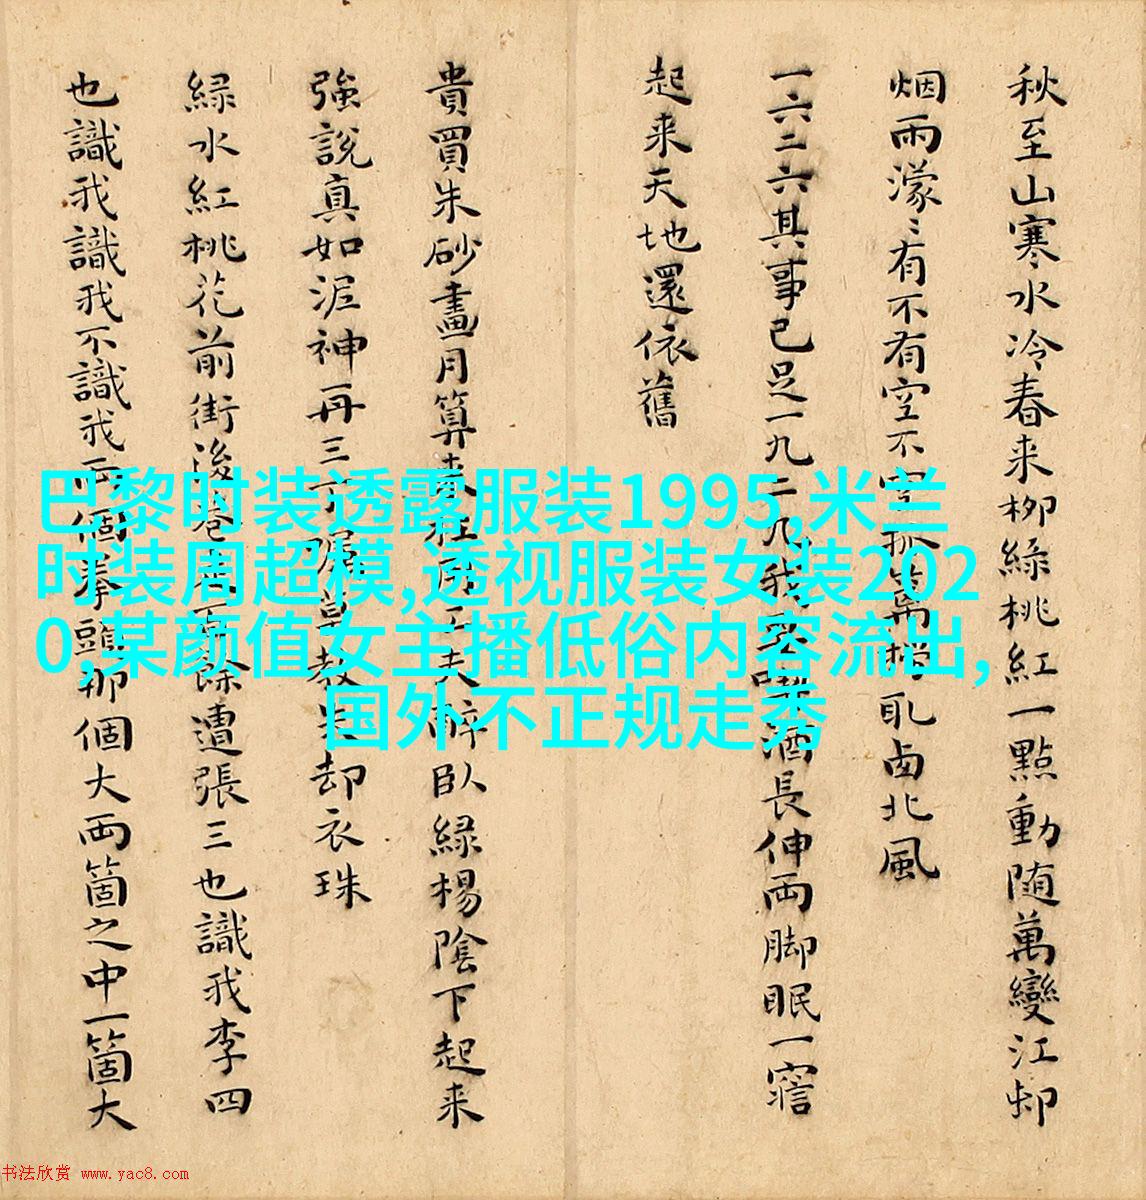 秋至山寒水冷春来柳緑桃紅一點動随萬變江邨
烟雨濛〻有不有空不空
北風
一六二六其事已足一九二九我要
酒長伸両脚眠一窹
起来天地還依舊
貴買朱砂畫月算来
醉臥緑楊陰下起来
強説真如泥神再三
却衣珠
緑水紅桃花前街後巷
餘遭張三也識我李四
也識我識我不識我両個拳頭那個大両箇之中一箇大
巴黎时装透露服装1995,米兰
时装周超模,透视服装女装202
0,某颜值女主播低俗内容流出,
国外不正规走秀
书法欣赏 www.yac8.com